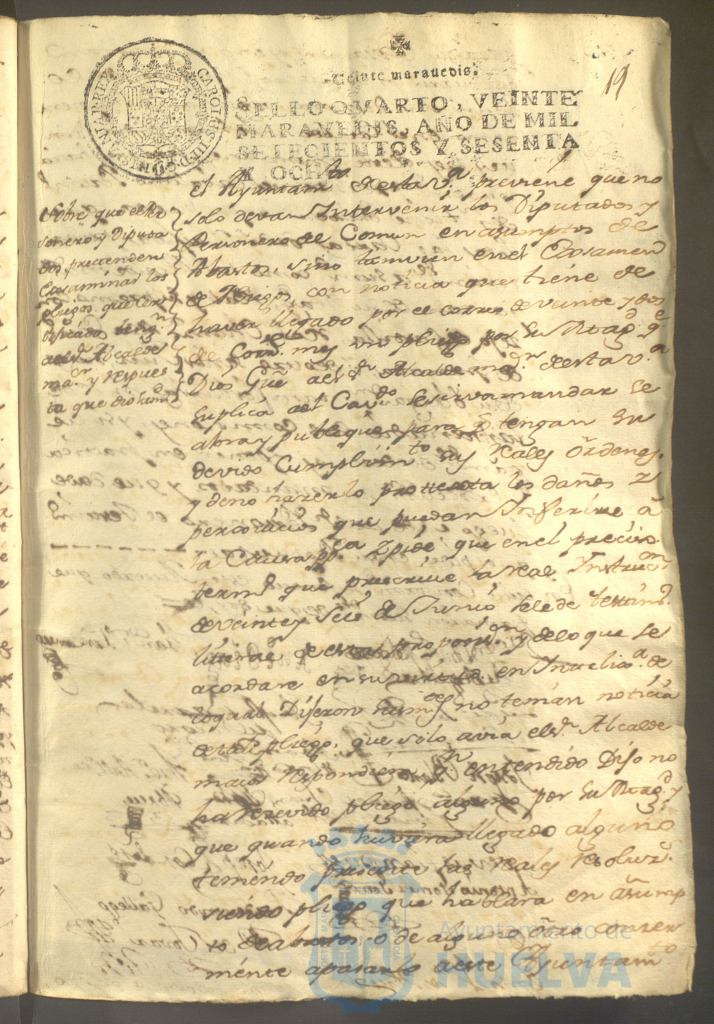 19
Veinte maravedis.
SELLO QVARTO, VEINTE
MARAVEDIS, AÑO DE MIL
SETECIENTOS Y SESENTA
Y OCHO.
CAROLUS III D G HISPANIAR REX
Sobre que el Per
sonero y Diputa
dos pretenden
Examinar los
pliegos que ven
al Sr. Alcalde
mar. y respues
ta que dio
el Ayuntamto. de esta va. previene que no
solo devan Intervenir los Diputados y
Personero del Comun en asumptos de
Abastos, sino tamvien en el Examen
de Pliegos, con noticia que tiene de
haver llegado por el correo de veinte y dos
de Corrte. mes un pliego por Su Magd. qe.
Dios Gue al Sr. Alcalde mor. de esta va.
Suplica al Cavdo. se sirva mandar se
abra y publique para q. tengan su
devido Cumplimto. sus reales Ordenes
y de no hacerlo protesta los daños y
perjuicios que puedan Inferirse â
la Causa pca. y pide que en el preciso
termo. que prescrive la real Instrucon.
de veinte y seis de Junio se le de testimo.
literal de esta proposion. y de lo que se
acordare en su virtud en Inteliga. de
lo qual Dijeron sus mdes. no tenian noticia
de tal pliego: que solo avia el Sr. Alcalde
maior entendido Dijo no
ha recevido pliego alguno por Su Magd. y
que quando huviera llegado alguno
teniendo presente las reales resoluzs.
viendo pliego que hablara en asump
to de abastos, o de alguno otro correr
mente a pasarlo a este Ayuntamto.
Ayuntamiento de
HUELVA